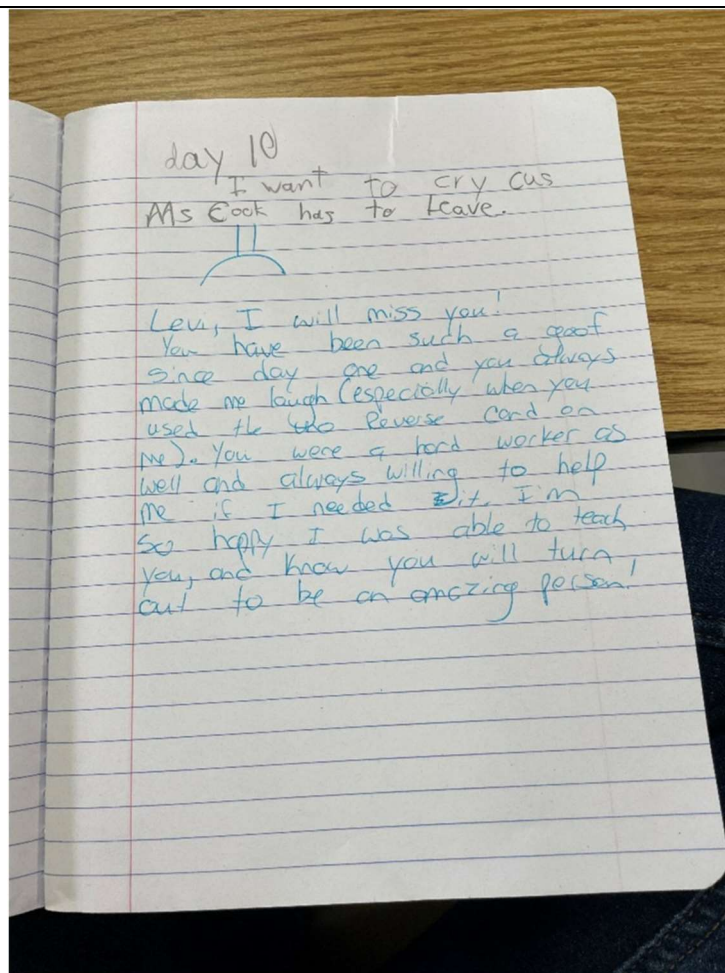 day 10
I want to cry cus
Ms Cook has to leave.
Levi, I will miss you!
You have been such a goof
since day one and you always
made me laugh (especially when you
used the uno Reverse card on
me). You were a hard worker as
well and always willing to help
me if I needed it. I'm
so happy I was able to teach
you, and know you will turn
out to be an amazing person!